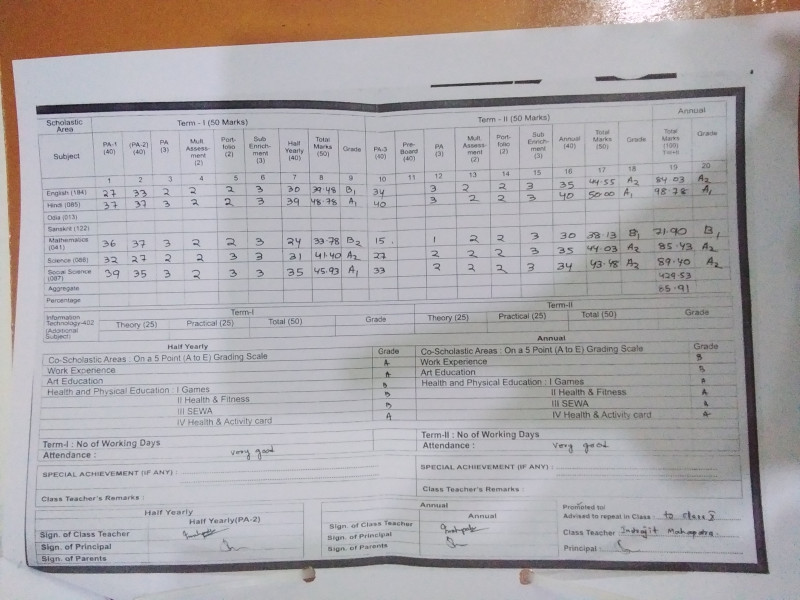 Scholastic Area Term - I (50 Marks) Term - II (50 Marks) Annual
Subject PA-1 (40) (PA-2) (40) PA (3) Mult. Assess-ment (2) Port-folio (2) Sub Enrich-ment (3) Half Yearly (40) Total Marks (50) Grade PA-3 (40) Pre-Board (40) PA (3) Mult. Assess-ment (2) Port-folio (2) Sub Enrich-ment (3) Annual (40) Total Marks (50) Grade Total Marks (100) Grade
1 2 3 4 5 6 7 8 9 10 11 12 13 14 15 16 17 18 19 20
English (184) 27 33 2 2 2 3 30 39.48 B1 34 3 2 2 3 35 44.55 A2 84.03 A2
Hindi (085) 37 37 3 2 2 3 39 48.78 A1 40 3 2 2 3 40 50.00 A1 98.78 A1
Odia (013)
Sanskrit (122)
Mathematics (041) 36 37 3 2 2 3 24 33.78 B2 15 1 2 2 3 30 38.13 B1 71.90 B1
Science (086) 32 27 2 2 3 3 31 41.40 A2 27 2 2 2 3 35 44.03 A2 85.43 A2
Social Science (087) 39 35 3 2 3 3 35 45.93 A1 33 2 2 2 3 34 43.48 A2 89.40 A2
Aggregate 429.53
Percentage 85.91
Information Technology-402 (Additional Subject) Term-I Term-II
Theory (25) Practical (25) Total (50) Grade Theory (25) Practical (25) Total (50) Grade
Half Yearly Annual
Co-Scholastic Areas : On a 5 Point (A to E) Grading Scale Grade Co-Scholastic Areas : On a 5 Point (A to E) Grading Scale Grade
Work Experience A Work Experience B
Art Education A Art Education B
Health and Physical Education : I Games B Health and Physical Education : I Games A
II Health & Fitness B II Health & Fitness A
III SEWA B III SEWA A
IV Health & Activity card A IV Health & Activity card A
Term-I : No of Working Days Term-II : No of Working Days
Attendance : very good Attendance : very good
SPECIAL ACHIEVEMENT (IF ANY) : SPECIAL ACHIEVEMENT (IF ANY) :
Class Teacher's Remarks : Class Teacher's Remarks :
Half Yearly Annual Promoted to/
Half Yearly(PA-2) Annual Advised to repeat in Class : to class X
Sign. of Class Teacher Sign. of Class Teacher Class Teacher Indrajit Mahapatra.
Sign. of Principal Sign. of Principal Principal :
Sign. of Parents Sign. of Parents